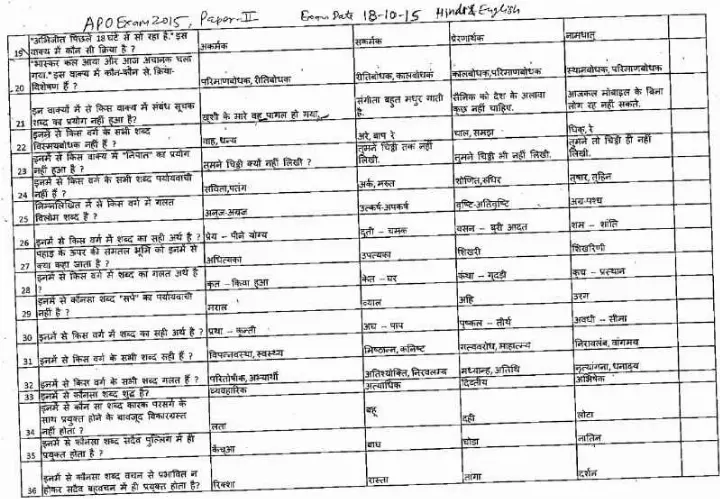 APO Exam 2015, Paper-II Exam Date 18-10-15 Hindi & English
19 "अभिजीत पिछले 18 घंटे से सो रहा है." इस वाक्य में कौन सी क्रिया है ? अकर्मक सकर्मक प्रेरणार्थक नामधातु
20 "भास्कर कल आया और आज अचानक चला गया." इस वाक्य में कौन-कौन से क्रिया-विशेषण हैं ? परिमाणबोधक, रीतिबोधक रीतिबोधक, कालबोधक कालबोधक, परिमाणबोधक स्थानबोधक, परिमाणबोधक
21 इन वाक्यों में से किस वाक्य में संबंध सूचक शब्द का प्रयोग नहीं हुआ है? खुशी के मारे वह पागल हो गया. संगीता बहुत मधुर गाती है. सैनिक को देश के अलावा कुछ नहीं चाहिए. आजकल मोबाइल के बिना लोग रह नहीं सकते.
22 इनमें से किस वर्ग के सभी शब्द विस्मयबोधक नहीं हैं ? वाह, धन्य अरे, बाप रे चाल, समझ धिक्, रे
23 इनमें से किस वाक्य में "निपात" का प्रयोग नहीं हुआ है ? तुमने चिट्ठी क्यों नहीं लिखी ? तुमने चिट्ठी तक नहीं लिखी. तुमने चिट्ठी भी नहीं लिखी. तुमने तो चिट्ठी ही नहीं लिखी.
24 इनमें से किस वर्ग के सभी शब्द पर्यायवाची नहीं हैं ? सविता, पतंग अर्क, मरुत शोणित, रुधिर तुषार, तुहिन
25 निम्नलिखित में से किस वर्ग में गलत विलोम शब्द है ? अनुज-अग्रज उत्कर्ष-अपकर्ष वृष्टि-अतिवृष्टि अग्र-पश्च
26 इनमें से किस वर्ग में शब्द का सही अर्थ है ? प्रेय – पीने योग्य दुती – चमक वसन – बुरी आदत शम – शांति
27 पहाड़ के ऊपर की समतल भूमि को इनमें से क्या कहा जाता है ? अधित्यका उपत्यका शिखरी शिखरिणी
28 इनमें से किस वर्ग में शब्द का गलत अर्थ है ? कृत – किया हुआ केत – घर कंथा – गुदड़ी कूच – प्रस्थान
29 इनमें से कौनसा शब्द "सर्प" का पर्यायवाची नहीं है ? मराल व्याल अहि उरग
30 इनमें से किस वर्ग में शब्द का सही अर्थ है ? प्रथा – कुन्ती अघ – पाप पुष्कल – तीर्थ अवधी – सीमा
31 इनमें से किस वर्ग के सभी शब्द सही हैं ? विपन्नवस्था, स्वस्थ्य मिष्ठान्न, कनिष्ट गत्यवरोध, माहात्म्य निरावलंब, वांगमय
32 इनमें से किस वर्ग के सभी शब्द गलत हैं ? परितोषीक, अभ्यार्थी अतिश्योक्ति, निरवलम्ब मध्यान्ह, अतिथि नृत्यांगना, धनाढ्य
33 इनमें से कौनसा शब्द शुद्ध है? व्यवहारिक अत्याधिक दिवतीय अभिषेक
34 इनमें से कौन सा शब्द कारक परसर्ग के साथ प्रयुक्त होने के बावजूद विकारग्रस्त नहीं होता ? लता बहू दही लोटा
35 इनमें से कौनसा शब्द सदैव पुल्लिंग में ही प्रयुक्त होता है ? केंचुआ बाघ घोडा नातिन
36 इनमें से कौनसा शब्द वचन से प्रभावित न होकर सदैव बहुवचन में ही प्रयुक्त होता है? रिक्शा रास्ता तागा दर्शन